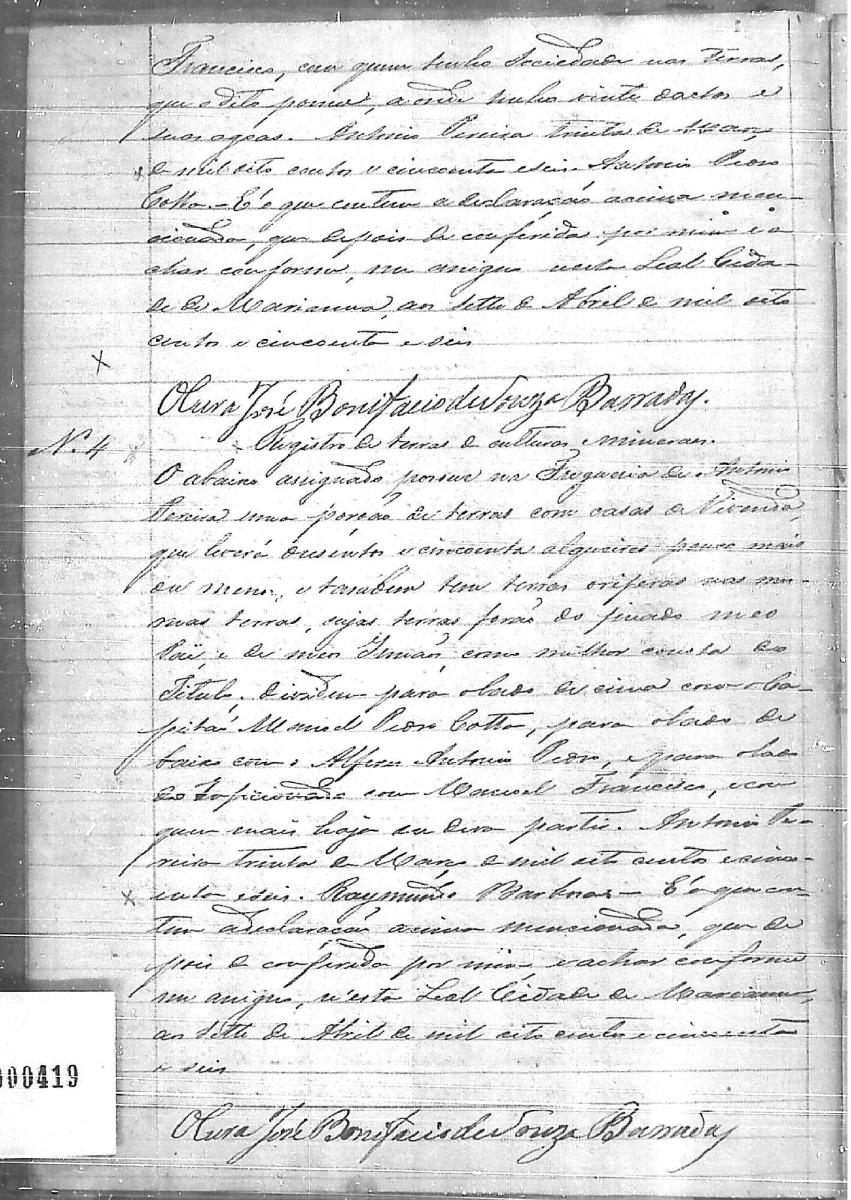 Francisco, com quem tenho Sociedade nas terras,
que o dito possue, a onde tenho vinte datas e
suas agoas. Antonio Pereira trinta de Março
de mil oito centos e cincoenta e seis. Antonio Pedro
Cotta. – E' o que contem a declaração acima men-
cionada, que depois de conferida por mim e a
char conforme, me assigno nesta Leal Cida-
de de Marianna, aos sette de Abril de mil oito
centos e cincoenta e seis
O Cura José Bonifacio de Souza Barradas.
N.º 4 Registro de terras de culturas e mineraes.
O abaixo assignado possue na Freguesia de Antonio
Pereira uma porção de terras com casas de Vivenda,
que levará dusentos e cincoenta alqueires pouco mais
ou menos, e tambem tem terras oriferas nas mes-
mas terras, cujas terras forão do finado meo
Pai, e de meos Irmãos, como milhor consta do
Titulo. Dividem para o lado de cima com o Ca-
pitão Manoel Pedro Cotta, para o lado de
baixo com o Alferes Antonio Pedro, e para o lado
com Manoel Francisco, e com
quem mais haja ou deva partir. Antonio Pe-
reira trinta de Março de mil oito centos e cinco-
enta e seis. Raymundo Barbosa – E' o que con-
tem a declaração acima mencionada, que de
pois de conferida por mim, e achar conforme
me assigno, n'esta Leal Cidade de Marianna,
aos sette de Abril de mil oito centos e cincoenta
e seis
O Cura José Bonifacio de Souza Barradas
000419